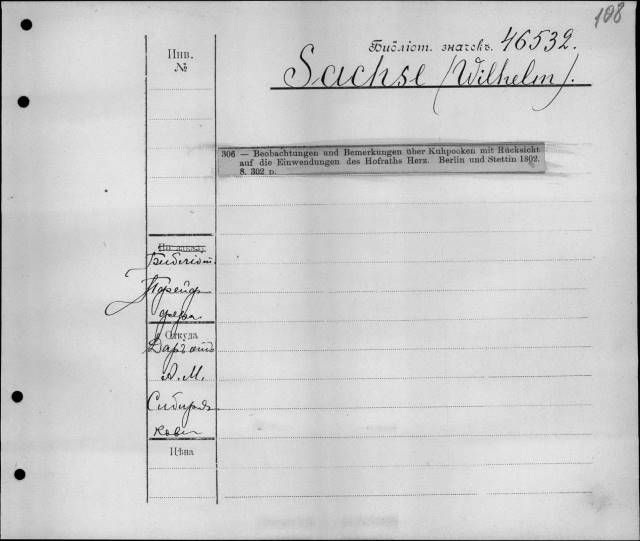 108
Библіот. значекъ. 46532.
Sachse (Wilhelm).
Инв.
№
306 — Beobachtungen und Bemerkungen über Kuhpocken mit Rücksicht
auf die Einwendungen des Hofraths Herz. Berlin und Stettin 1802.
8. 302 p.
Библіот.
Прейф
фера
Откуда
Даръ отъ
А. М.
Сибиряк
кова
Цѣна